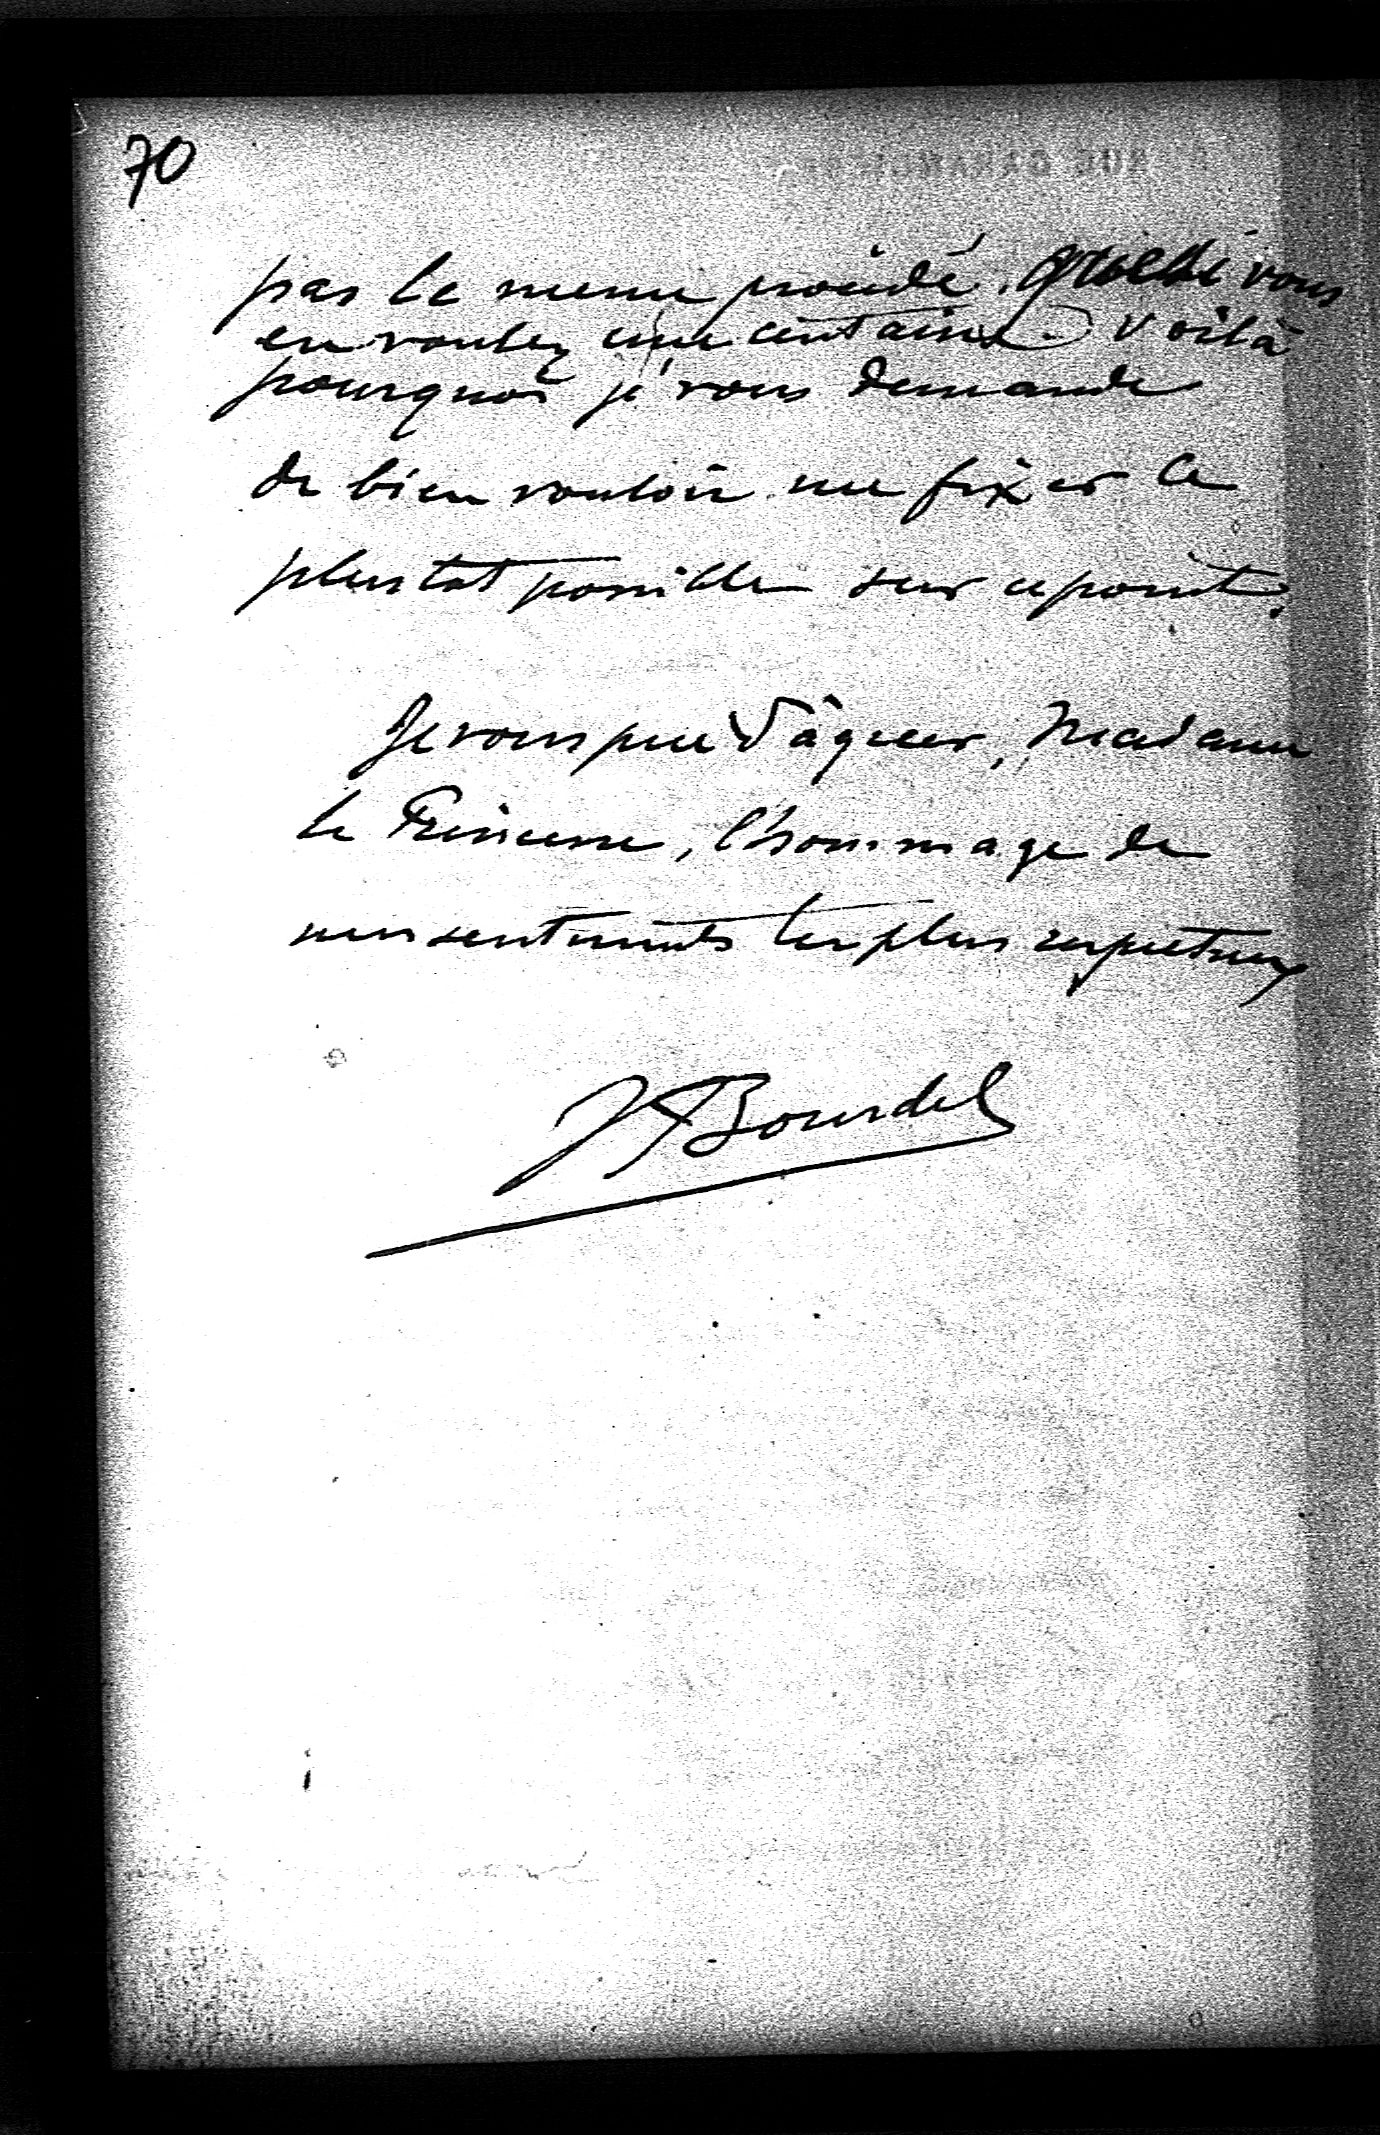 70
pas le même procédé, que si vous
en voulez une centaine. Voilà
pourquoi je vous demande
de bien vouloir me fixer le
plus tôt possible sur ce point.
Je vous prie d'agréer, Madame
la Princesse, l'hommage de
mes sentiments les plus respectueux
Bourdel